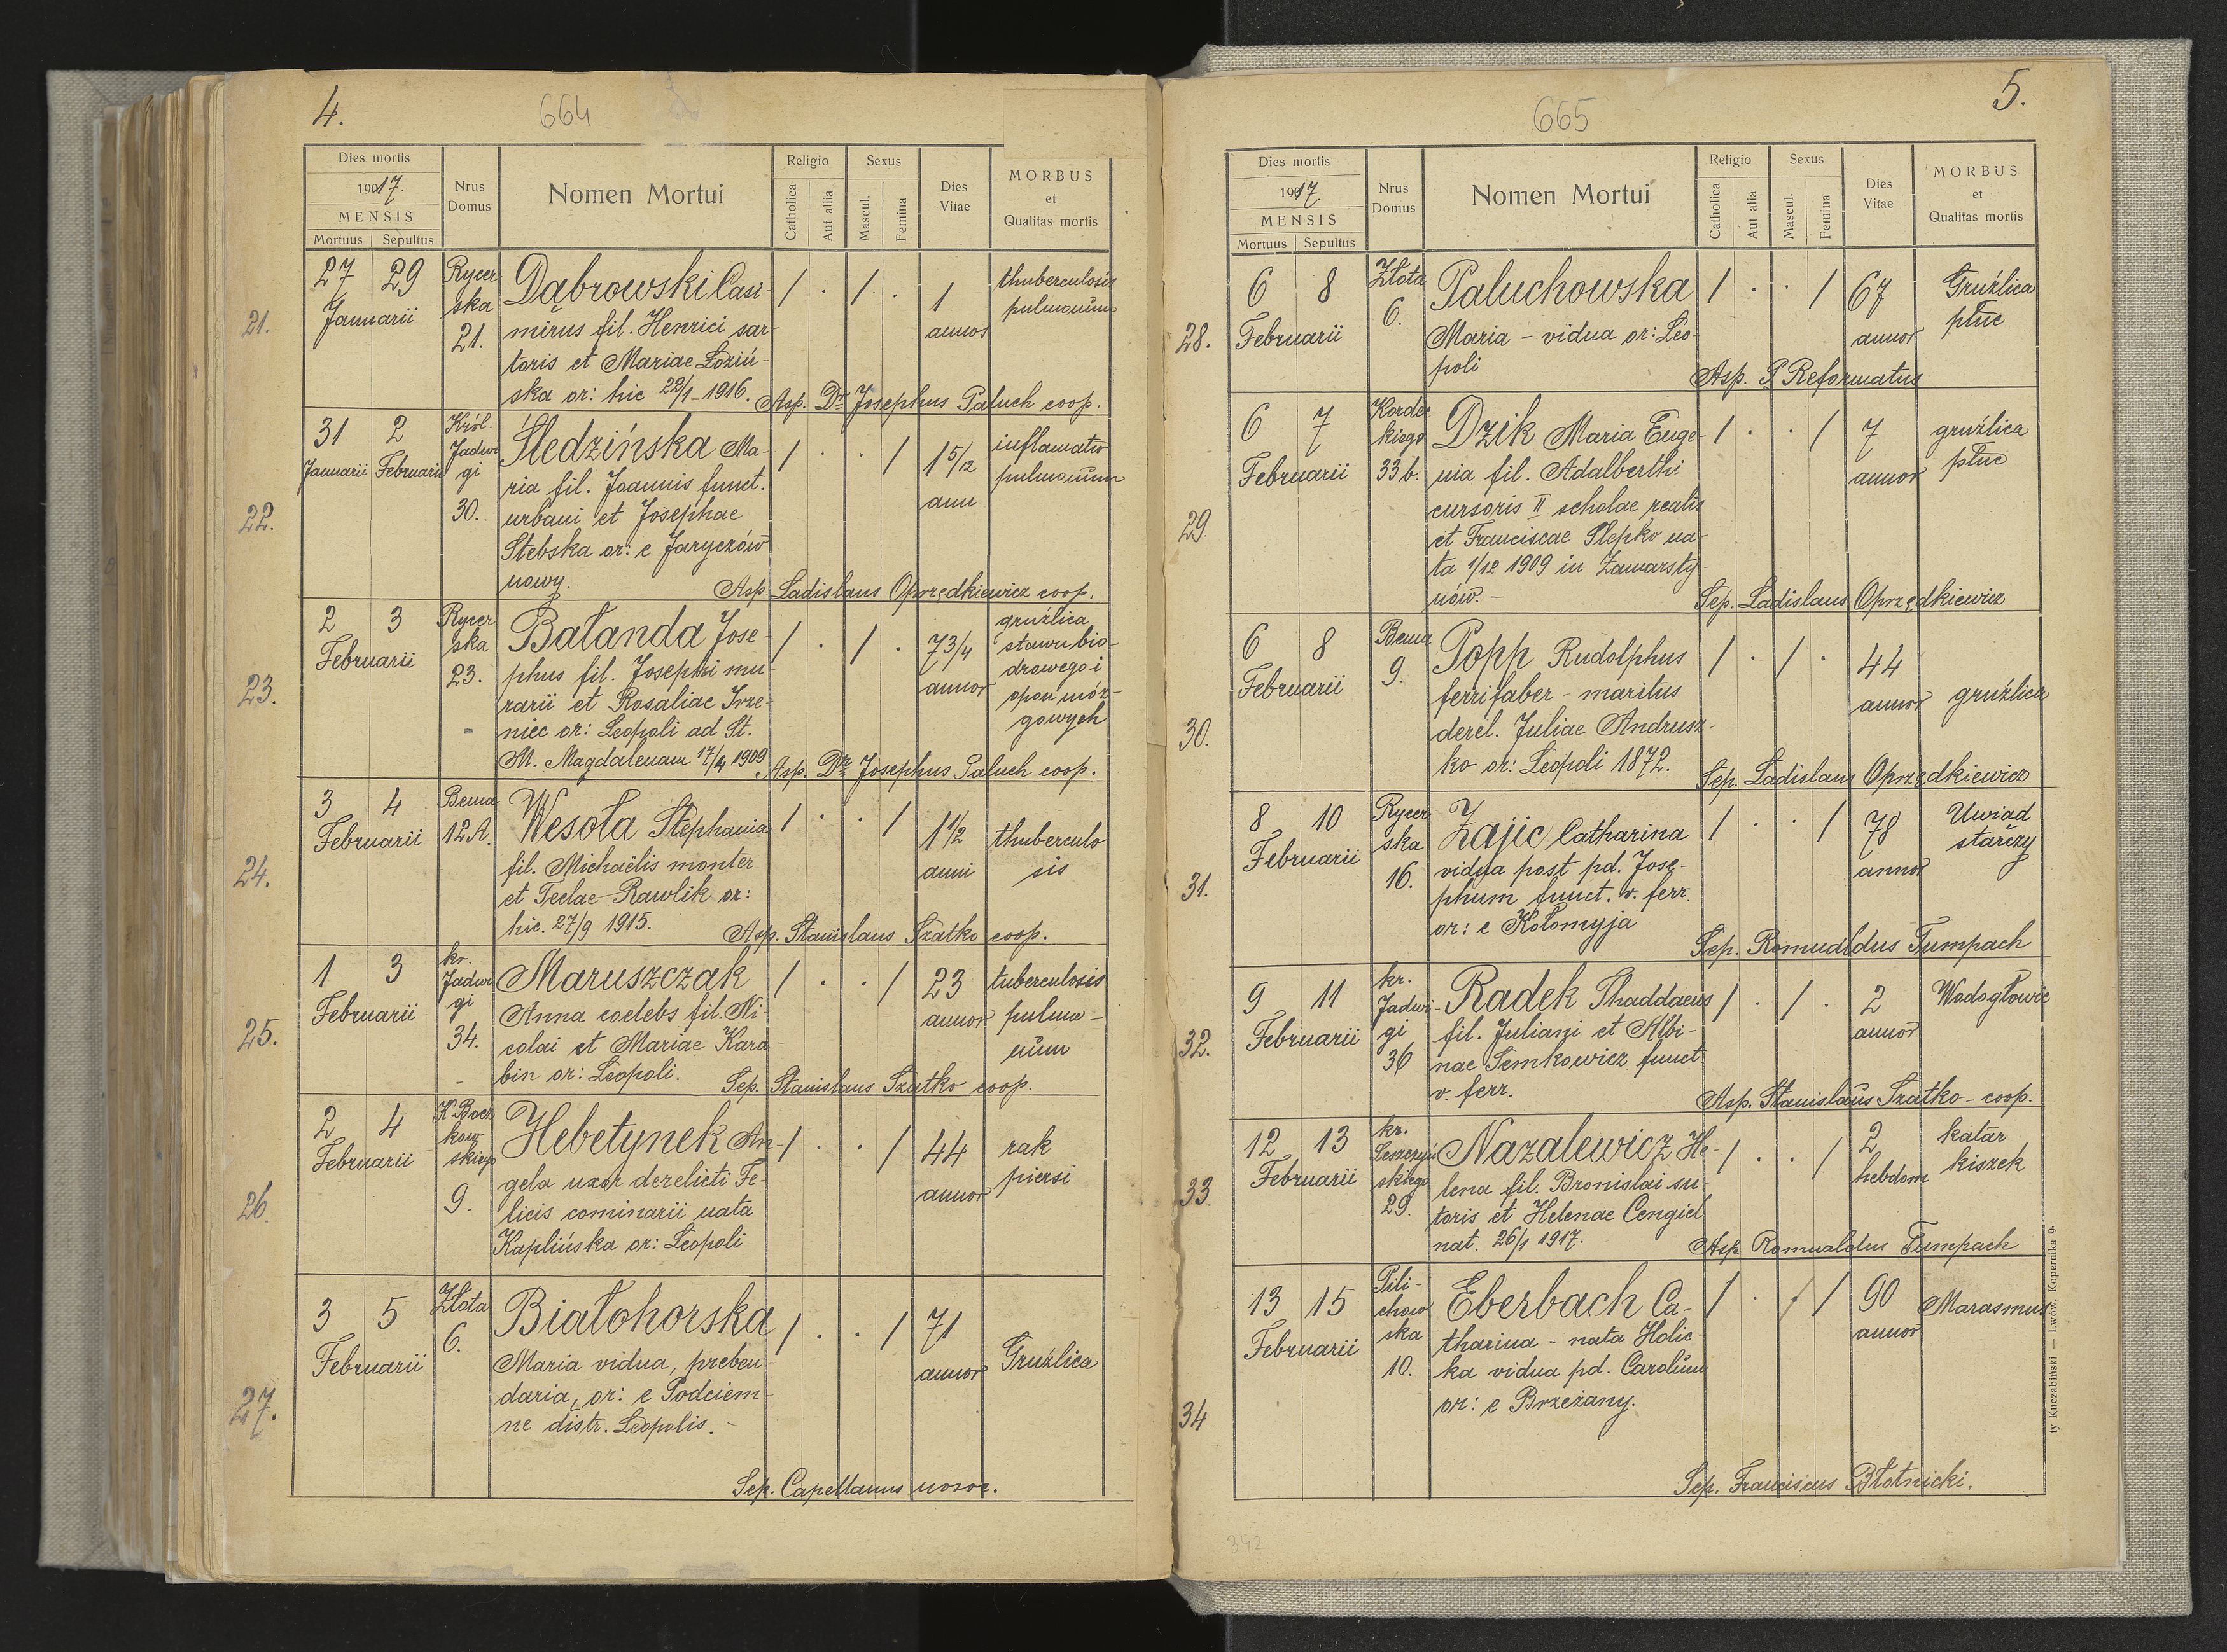 4.
664
Dies mortis
1917.
MENSIS
Mortuus Sepultus
Nrus Domus
Nomen Mortui
Religio
Catholica
Aut allia
Sexus
Mascul.
Femina
Dies Vitae
MORBUS
et
Qualitas mortis
21.
27 29
Januarii
Rycer
ska
21.
Dąbrowski Casi-
mirus fil. Henrici sar-
toris et Mariae Łoziń-
ska or: hic 22/1 1916.
/ . / .
1
annor
thuberculosis
pulmonum
Asp. Dr Josephus Paluch coop.
22.
31 2
Januarii Februarii
Król.
Jadwi
gi
30.
Śledzińska Ma-
ria fil. Joannis funct.
urbani et Josephae
Stebska or: e Jaryczów
nowy.
/ . . /
1 5/12
ann
inflamatio
pulmonum
Asp. Ladislaus Oprzędkiewicz coop.
23.
2 3
Februarii
Rycer
ska
23.
Bałanda Jose-
phus fil. Josephi mu-
rarii et Rosaliae Irze-
niec or: Leopoli ad St.
M. Magdalenam 17/4 1909
/ . / .
7 3/4
annor
gruźlica
stawu bio-
drowego i
opon móz-
gowych
Asp. Dr Josephus Paluch coop.
24.
3 4
Februarii
Bema
12A.
Wesoła Stephania
fil. Michaëlis monter
et Teclae Rawlik or:
hic. 27/9 1915.
/ . . /
1 1/2
anni
thuberculo
sis
Asp. Stanislaus Szatko coop.
25.
1 3
Februarii
kr.
Jadwi
gi
34.
Maruszczak
Anna coelebs fil. Ni-
colai et Mariae Kara-
bin or: Leopoli.
/ . . /
23
annor
tuberculosis
pulmo-
num
Sep. Stanislaus Szatko coop.
26.
2 4
Februarii
K. Bocz
kow-
skiego
9.
Hebetynek An-
gela uxor derelicti Fe-
licis cominarii nata
Kaplińska or: Leopoli
/ . . /
44
annor
rak
piersi
27.
3 5
Februarii
Złota
6.
Białohorska
Maria vidua, preben-
daria, or: e Podciem-
ne distr. Leopolis.
/ . . /
71
annor
Gruźlica
Sep. Capellanus nosoc.
5.
665
Dies mortis
1917
MENSIS
Mortuus Sepultus
Nrus Domus
Nomen Mortui
Religio
Catholica
Aut alia
Sexus
Mascul.
Femina
Dies Vitae
MORBUS
et
Qualitas mortis
28.
6 8
Februarii
Złota
6.
Paluchowska
Maria - vidua or: Leo-
poli
/ . . /
67
annor
Gruźlica
płuc
Asp. P Reformatus
29.
6 7
Februarii
Kordec
kiego
33 b.
Dzik Maria Euge-
nia fil. Adalberthi
cursoris II scholae realis
et Franciscae Slepko na-
ta 1/12 1909 in Zamarsty-
nów.-
/ . . /
7
annor
gruźlica
płuc
Sep. Ladislaus Oprzędkiewicz
30.
6 8
Februarii
Bema
9.
Popp Rudolphus
ferrifaber - maritus
derel. Juliae Andrusz-
ko or: Leopoli 1872.
/ . / .
44
annor
gruźlica
Sep. Ladislaus Oprzędkiewicz
31.
8 10
Februarii
Rycer
ska
16.
Zajic Catharina
vidua post pd. Jose-
phum funct. v. ferr.
or: e Kołomyja
/ . . /
78
annor
Uwiad
starczy
Sep. Romualdus Tumpach
32.
9 11
Februarii
kr.
Jadwi-
gi
36
Radek Thaddaeus
fil. Juliani et Albi-
nae Semkowicz funct.
v. ferr.
/ . / .
2
annor
Wodogłowie
Asp. Stanislaus Szatko - coop.
33.
12 13
Februarii
kr.
Leszczyń
skiego
29.
Nazalewicz He-
lena fil. Bronislai su-
toris et Helenae Cengiel
nat. 26/1 1917.
/ . . /
2
hebdom
katar
kiszek
Asp. Romualdus Tumpach
34
13 15
Februarii
Pili-
chow
ska
10.
Eberbach Ca-
tharina - nata Holic-
ka vidua pd. Carolum
or: e Brzeżany.
/ . / /
90
annor
Marasmus
Sep. Franciscus Błotnicki.
ty Kuczabiński — Lwów, Kopernika 9.
342